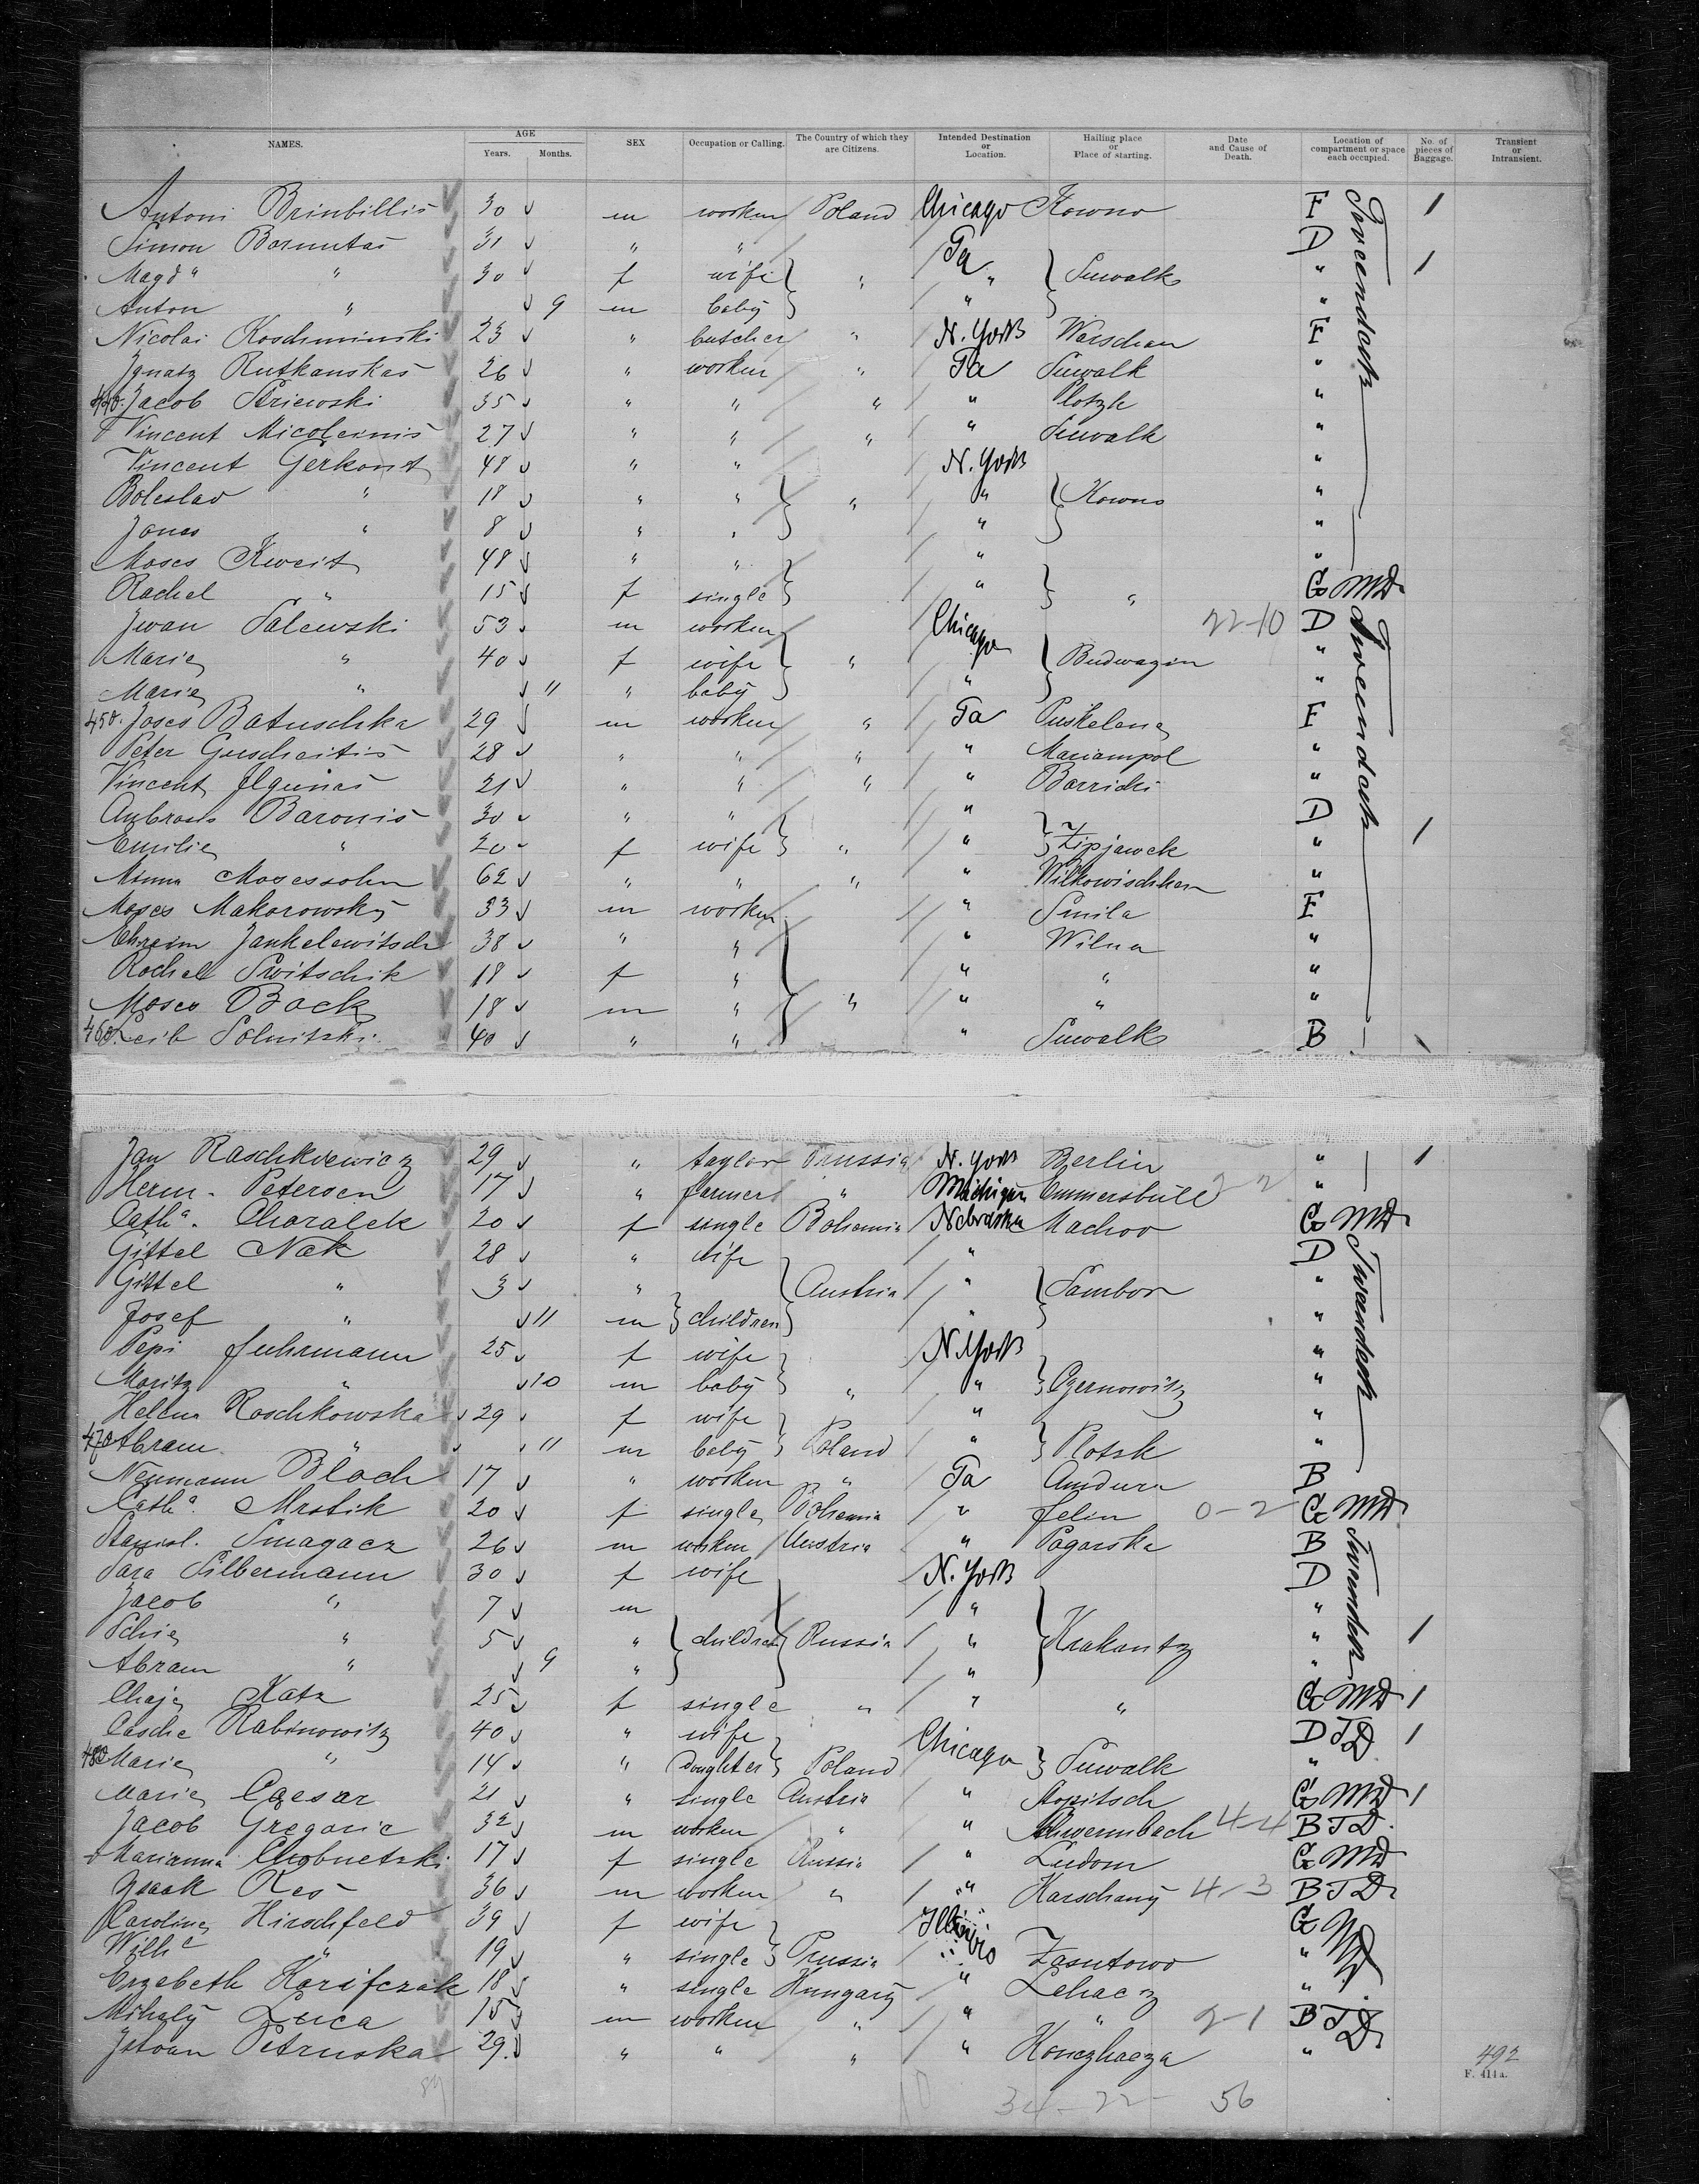 NAMES. AGE Years. Months. SEX Occupation or Calling. The Country of which they are Citizens. Intended Destination or Location. Hailing place or Place of starting. Date and Cause of Death. Location of compartment or space each occupied. No. of pieces of Baggage. Transient or Intransient.
Antoni Brinbillis 30 m worker Poland Chicago Kowno F 1
Simon Bornutas 31 " " Pa D
Magdª " 30 f wife " " Suwalk " 1
Anton " 9 m baby " "
Nicolai Koschminski 23 " butcher " N. York Warschau F
Ignatz Rutkanskas 26 " worker " Pa Suwalk "
440. Jacob Striewski 35 " " " " Plotzk "
Vincent Micoleinis 27 " " " " Suwalk "
Vincent Gerkont 48 " " N. York "
Boleslav " 18 " " " " Kowno "
Jonas " 8 " " " "
Moses Kweit 48 " " " "
Rachel " 15 f single " " G MD
Iwan Salewski 53 m worker Chicago 22-10 D
Marie " 40 f wife " " Budwagin "
Marie " 11 " baby " "
450. Joses Batuschka 29 m worker " Pa Puskelana F
Peter Guscheitis 28 " " " " Mariampol "
Vincent Ilgunas 21 " " " " Barrichi "
Ambrosis Baronis 30 " " " D
Emilie " 20 f wife " " Zipjawek " 1
Minna Mosessohn 62 " " " " Wilkowischken "
Moses Makorowsky 33 m worker " Smila F
Ehraim Jankelewitsch 38 " " " Wilna "
Rachel Switschik 18 f " " " "
Moses Bock 18 m " " " " "
460. Leib Solnitzki 40 " " " Suwalk B 1
Jan Raschkiewicz 29 " taylor Prussia N. York Berlin " 1
Herm. Petersen 17 " farmer " Michigan Emmersbüll 2-2 "
Cathª. Charalek 20 f single Bohemia Nebraska Machov G MD
Gittel Nak 28 " wife " D
Gittel " 3 " Austria " Sambor "
Josef " 11 m children " "
Pepi Fuhrmann 25 f wife N. York "
Moritz " 10 m baby " " Czernowitz "
Helena Roschkowska 29 f wife " "
470 Abram " 11 m baby Poland " Plotsk "
Neumann Bloch 17 " worker " Pa Amdura B
Cathª. Mrstik 20 f single Bohemia " Jelin 0-2 G MD
Stanisl. Smagacz 26 m worker Austria " Pagarska B
Sara Silbermann 30 f wife N. York D
Jacob " 7 m " "
Schie " 5 " children Russia " Krakantz " 1
Abram " 9 " " "
Chaje Katz 25 f single " " " G MD 1
Casche Rabinowitz 40 " wife Chicago D TD 1
480 Marie " 14 " Doughter Poland Suwalk "
Marie Caesar 21 " single Austria " Stopitsch G MD 1
Jacob Gregoric 32 m worker " " Schwermbach 4-4 B TD.
Marianna Chobnetzki 17 f single Russia " Ludom G MD
Isaak Res 36 m worker " " Karschany 4-3 B TD
Caroline Hirschfeld 39 f wife Illinois G MD
Wilhe " 19 " single Prussia Zasutowo "
Erzebeth Harifczak 18 " single Hungary " Lehacz "
Mihaly Luca 15 m worker " " " 2-1 B TD
Istvan Petruska 29. " " " " Konczhaza "
492
F. 411a.
34-22- 56